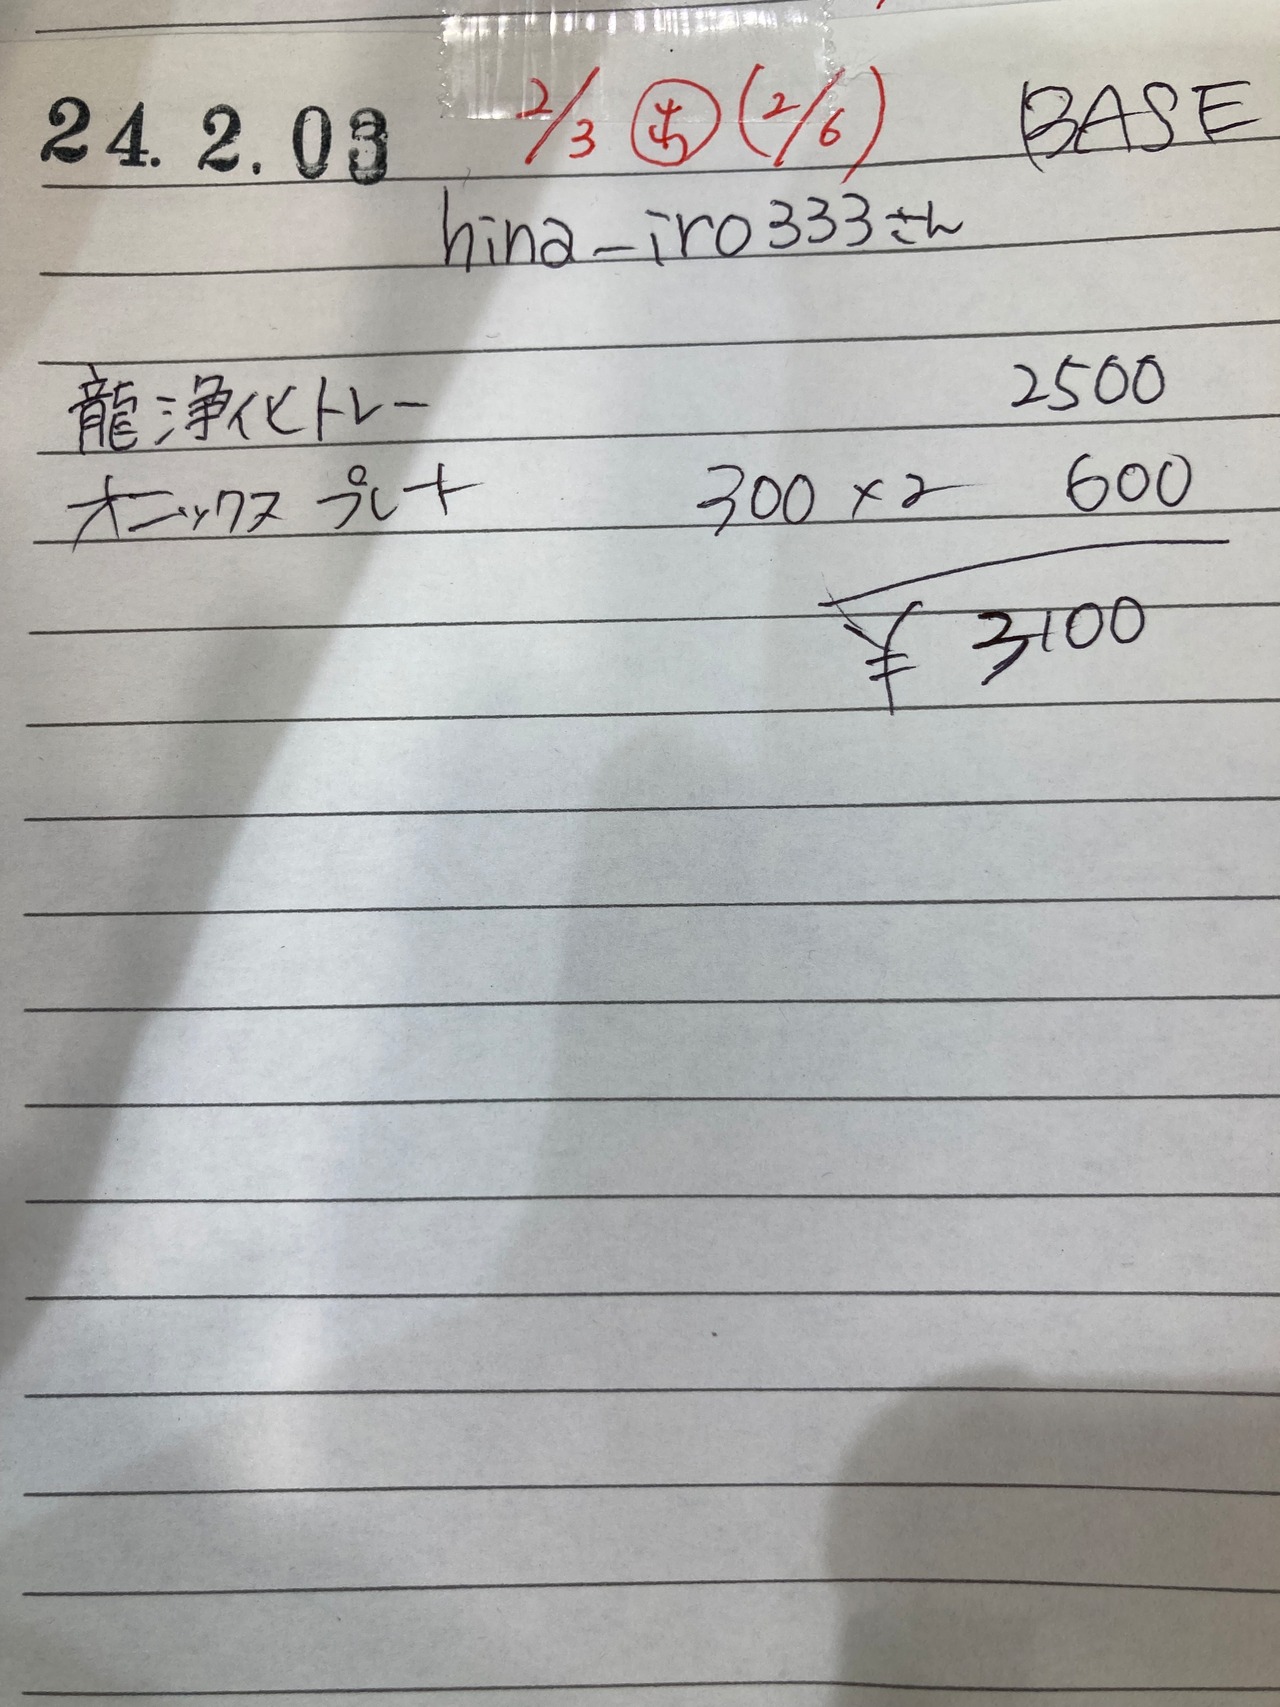 24.2.03 2/3 (2/6) BASE
hina_iro333さん
龍浄化トレー 2500
オニックスプレート 300×2 600
¥3100